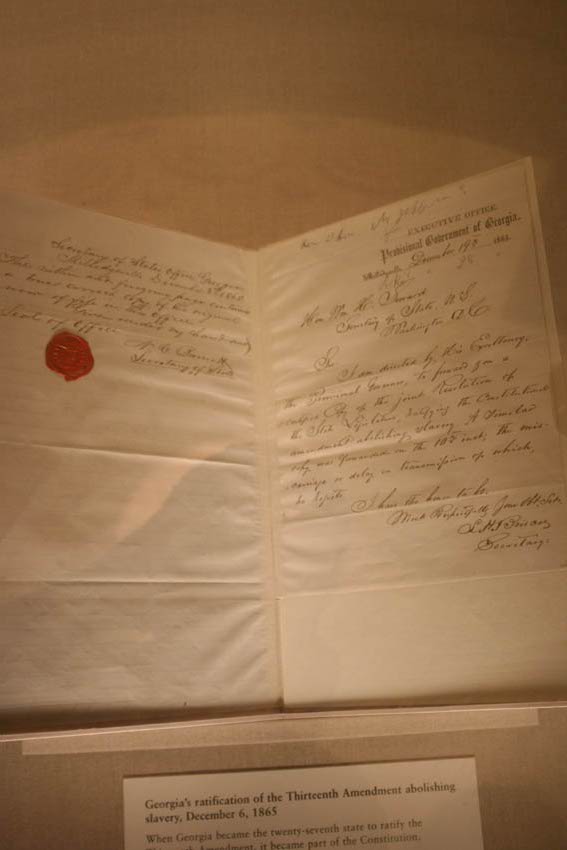 Secretary of State's Office, Georgia
Milledgeville December 1865
The within and foregoing pages contains
a true & correct copy of the original
now of file in this Office
Given under my hand and
Seal of Office
Secretary of State
EXECUTIVE OFFICE,
Provisional Government of Georgia.
Milledgeville, December 1865.
Hon. Wm. H. Seward
Secretary of State, U.S.
Washington D.C.
Sir
I am directed by His Excellency,
the Provisional Governor, to forward you a
Copy of the joint Resolution of
the State Legislature, ratifying the Constitutional
amendment abolishing slavery. A Similar
copy was forwarded on the inst; the mis-
carriage or delay in transmission of which,
he regrets.
I have the honor to be,
Most Respectfully Your Obt. Svt.
Secretary.
Georgia's ratification of the Thirteenth Amendment abolishing
slavery, December 6, 1865
When Georgia became the twenty-seventh state to ratify the
Thirteenth Amendment, it became part of the Constitution,